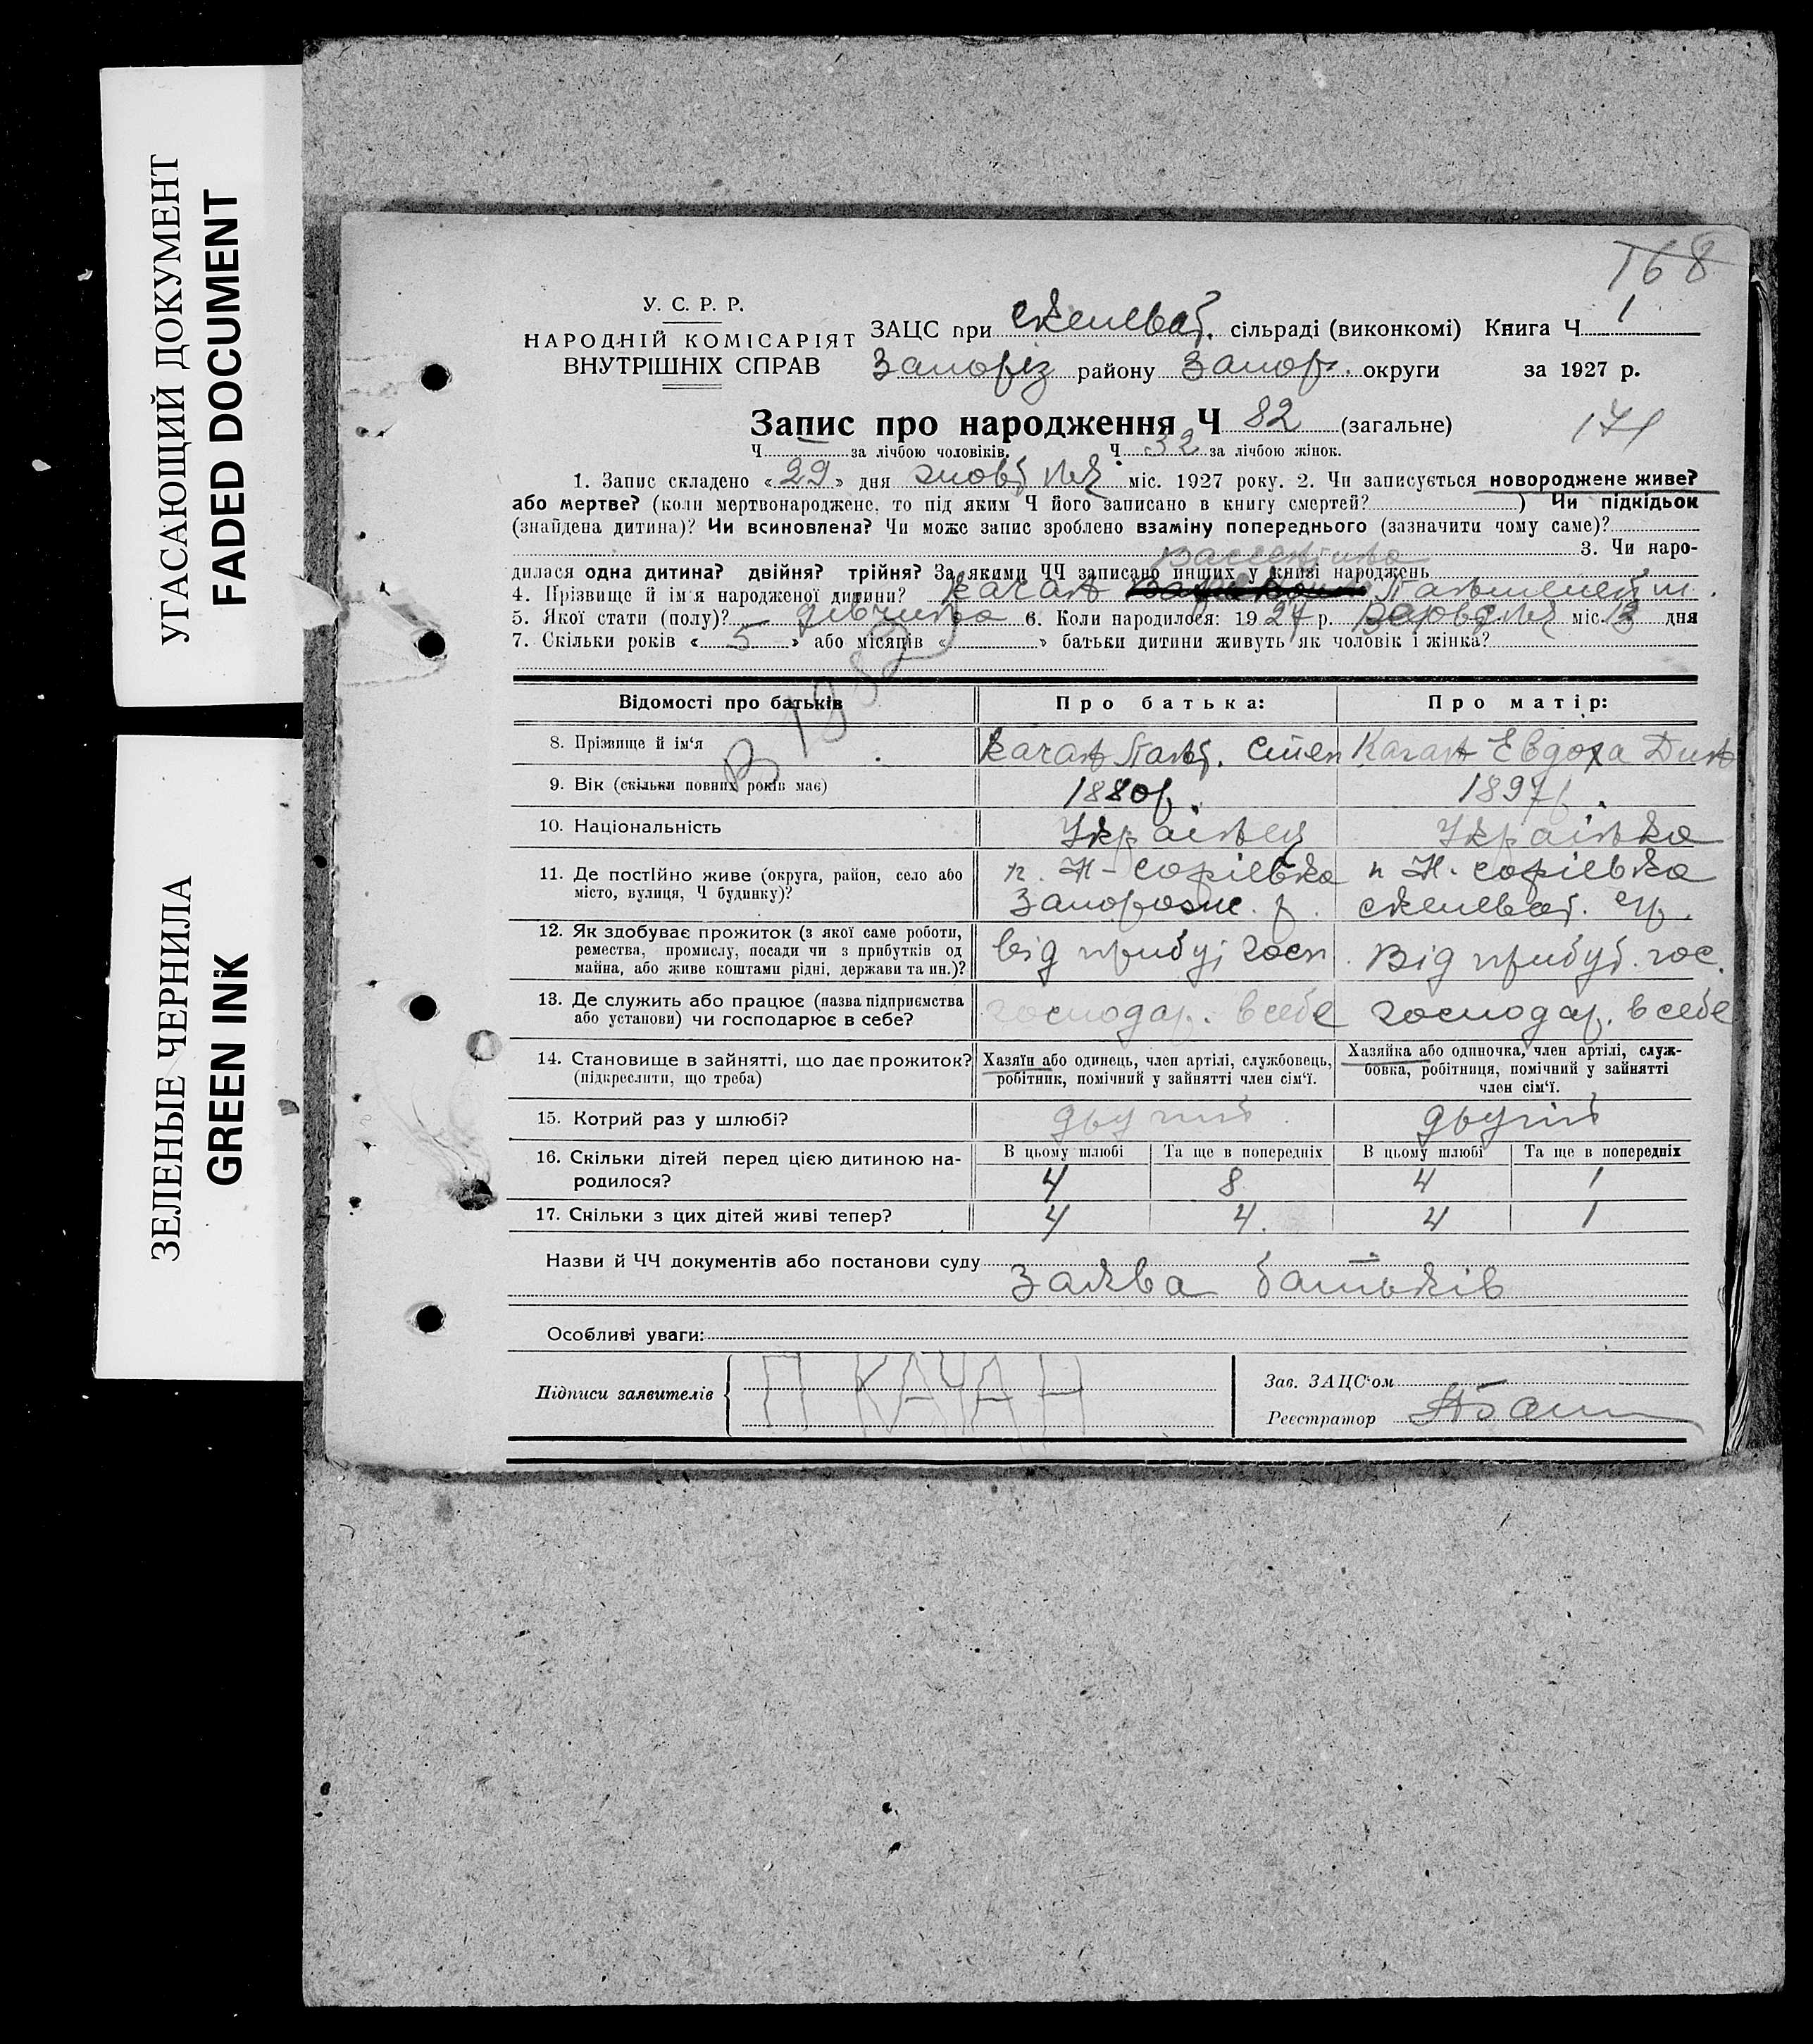 УГАСАЮЩИЙ ДОКУМЕНТ
FADED DOCUMENT
ЗЕЛЕНЫЕ ЧЕРНИЛА
GREEN INK
168
У. С. Р. Р.
НАРОДНІЙ КОМІСАРІЯТ
ВНУТРІШНІХ СПРАВ
ЗАЦС при Скелеват. сільраді (виконкомі) Книга Ч 1
Запоріз району Запор. округи за 1927 р.
Запис про народження Ч 82 (загальне)
171
Ч за лічбою чоловіків. Ч 32 за лічбою жінок.
1. Запис складено « 29 » дня жовтня міс. 1927 року. 2. Чи записується новороджене живе?
або мертве? (коли мертвонароджене, то під яким Ч його записано в книгу смертей? ) Чи підкідьок
(знайдена дитина)? Чи всиновлена? Чи може запис зроблено взаміну попереднього (зазначити чому саме)?
3. Чи наро-
дилася одна дитина? двійня? трійня? За якими ЧЧ записано инших у книзі народжень
Валентина
4. Прізвище й ім'я народженої дитини? Качан
5. Якої стати (полу)? дівчина 6. Коли народилося: 19 27 р. міс. дня
7. Скільки років « 5 » або місяців « » батьки дитини живуть як чоловік і жінка?
Відомості про батьків Про батька: Про матір:
8. Прізвище й ім'я Качан Пант. Степ Качан Евдоха
9. Вік (скільки повних років має) 1880р. 1897р.
10. Національність Українец Українка
11. Де постійно живе (округа, район, село або
місто, вулиця, Ч будинку)?
п. Н-Софіевка п Н. Софіевка
Запорозж. р. Скелеват. с/р.
12. Як здобуває прожиток (з якої саме роботи,
ремества, промислу, посади чи з прибутків од
майна, або живе коштами рідні, держави та ин.)?
від прибут госп. Від прибут. гос.
13. Де служить або працює (назва підприємства
або установи) чи господарює в себе?
господар. в себе господар. в себе
14. Становище в зайнятті, що дає прожиток?
(підкреслити, що треба)
Хазяїн або одинець, член артілі, службовець,
робітник, помічний у зайнятті член сім'ї.
Хазяйка або одиночка, член артілі, служ-
бовка, робітниця, помічний у зайнятті
член сім'ї.
15. Котрий раз у шлюбі? другий другий
16. Скільки дітей перед цією дитиною на-
родилося?
В цьому шлюбі Та ще в попередніх В цьому шлюбі Та ще в попередніх
4 8 4 1
17. Скільки з цих дітей живі тепер? 4 4. 4 1
Назви й ЧЧ документів або постанови суду
Заява батьків
Особливі уваги:
Підписи заявителів П КАЧАН
Зав. ЗАЦС'ом
Реєстратор